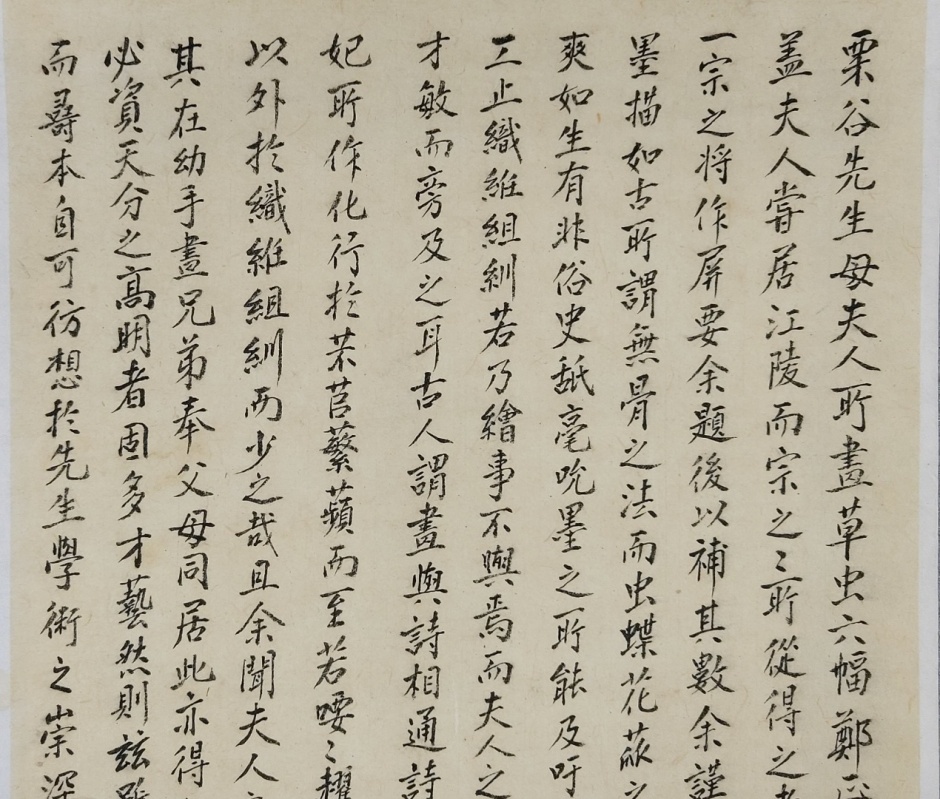 栗谷先生母夫人所畫草虫六幅鄭
盖夫人甞居江陵而宗之〻所從得之
一宗之将作屏要余題後以補其數余謹
墨描如古所謂無骨之法而虫蝶花蔬之
爽如生有非俗史舐毫吮墨之所能及吁
工止織絍組紃若乃繪事不與焉而夫人之
才敏而旁及之耳古人謂畫與詩相通詩
妃所作化行於芣苢蘩蘋而至若喓〻趯
以外於織絍組紃而少之哉且余聞夫人
其在幼手畫兄弟奉父母同居此亦得
必資天分之高明者固多才藝然則玆
而尋本自可彷想於先生學術之崇深